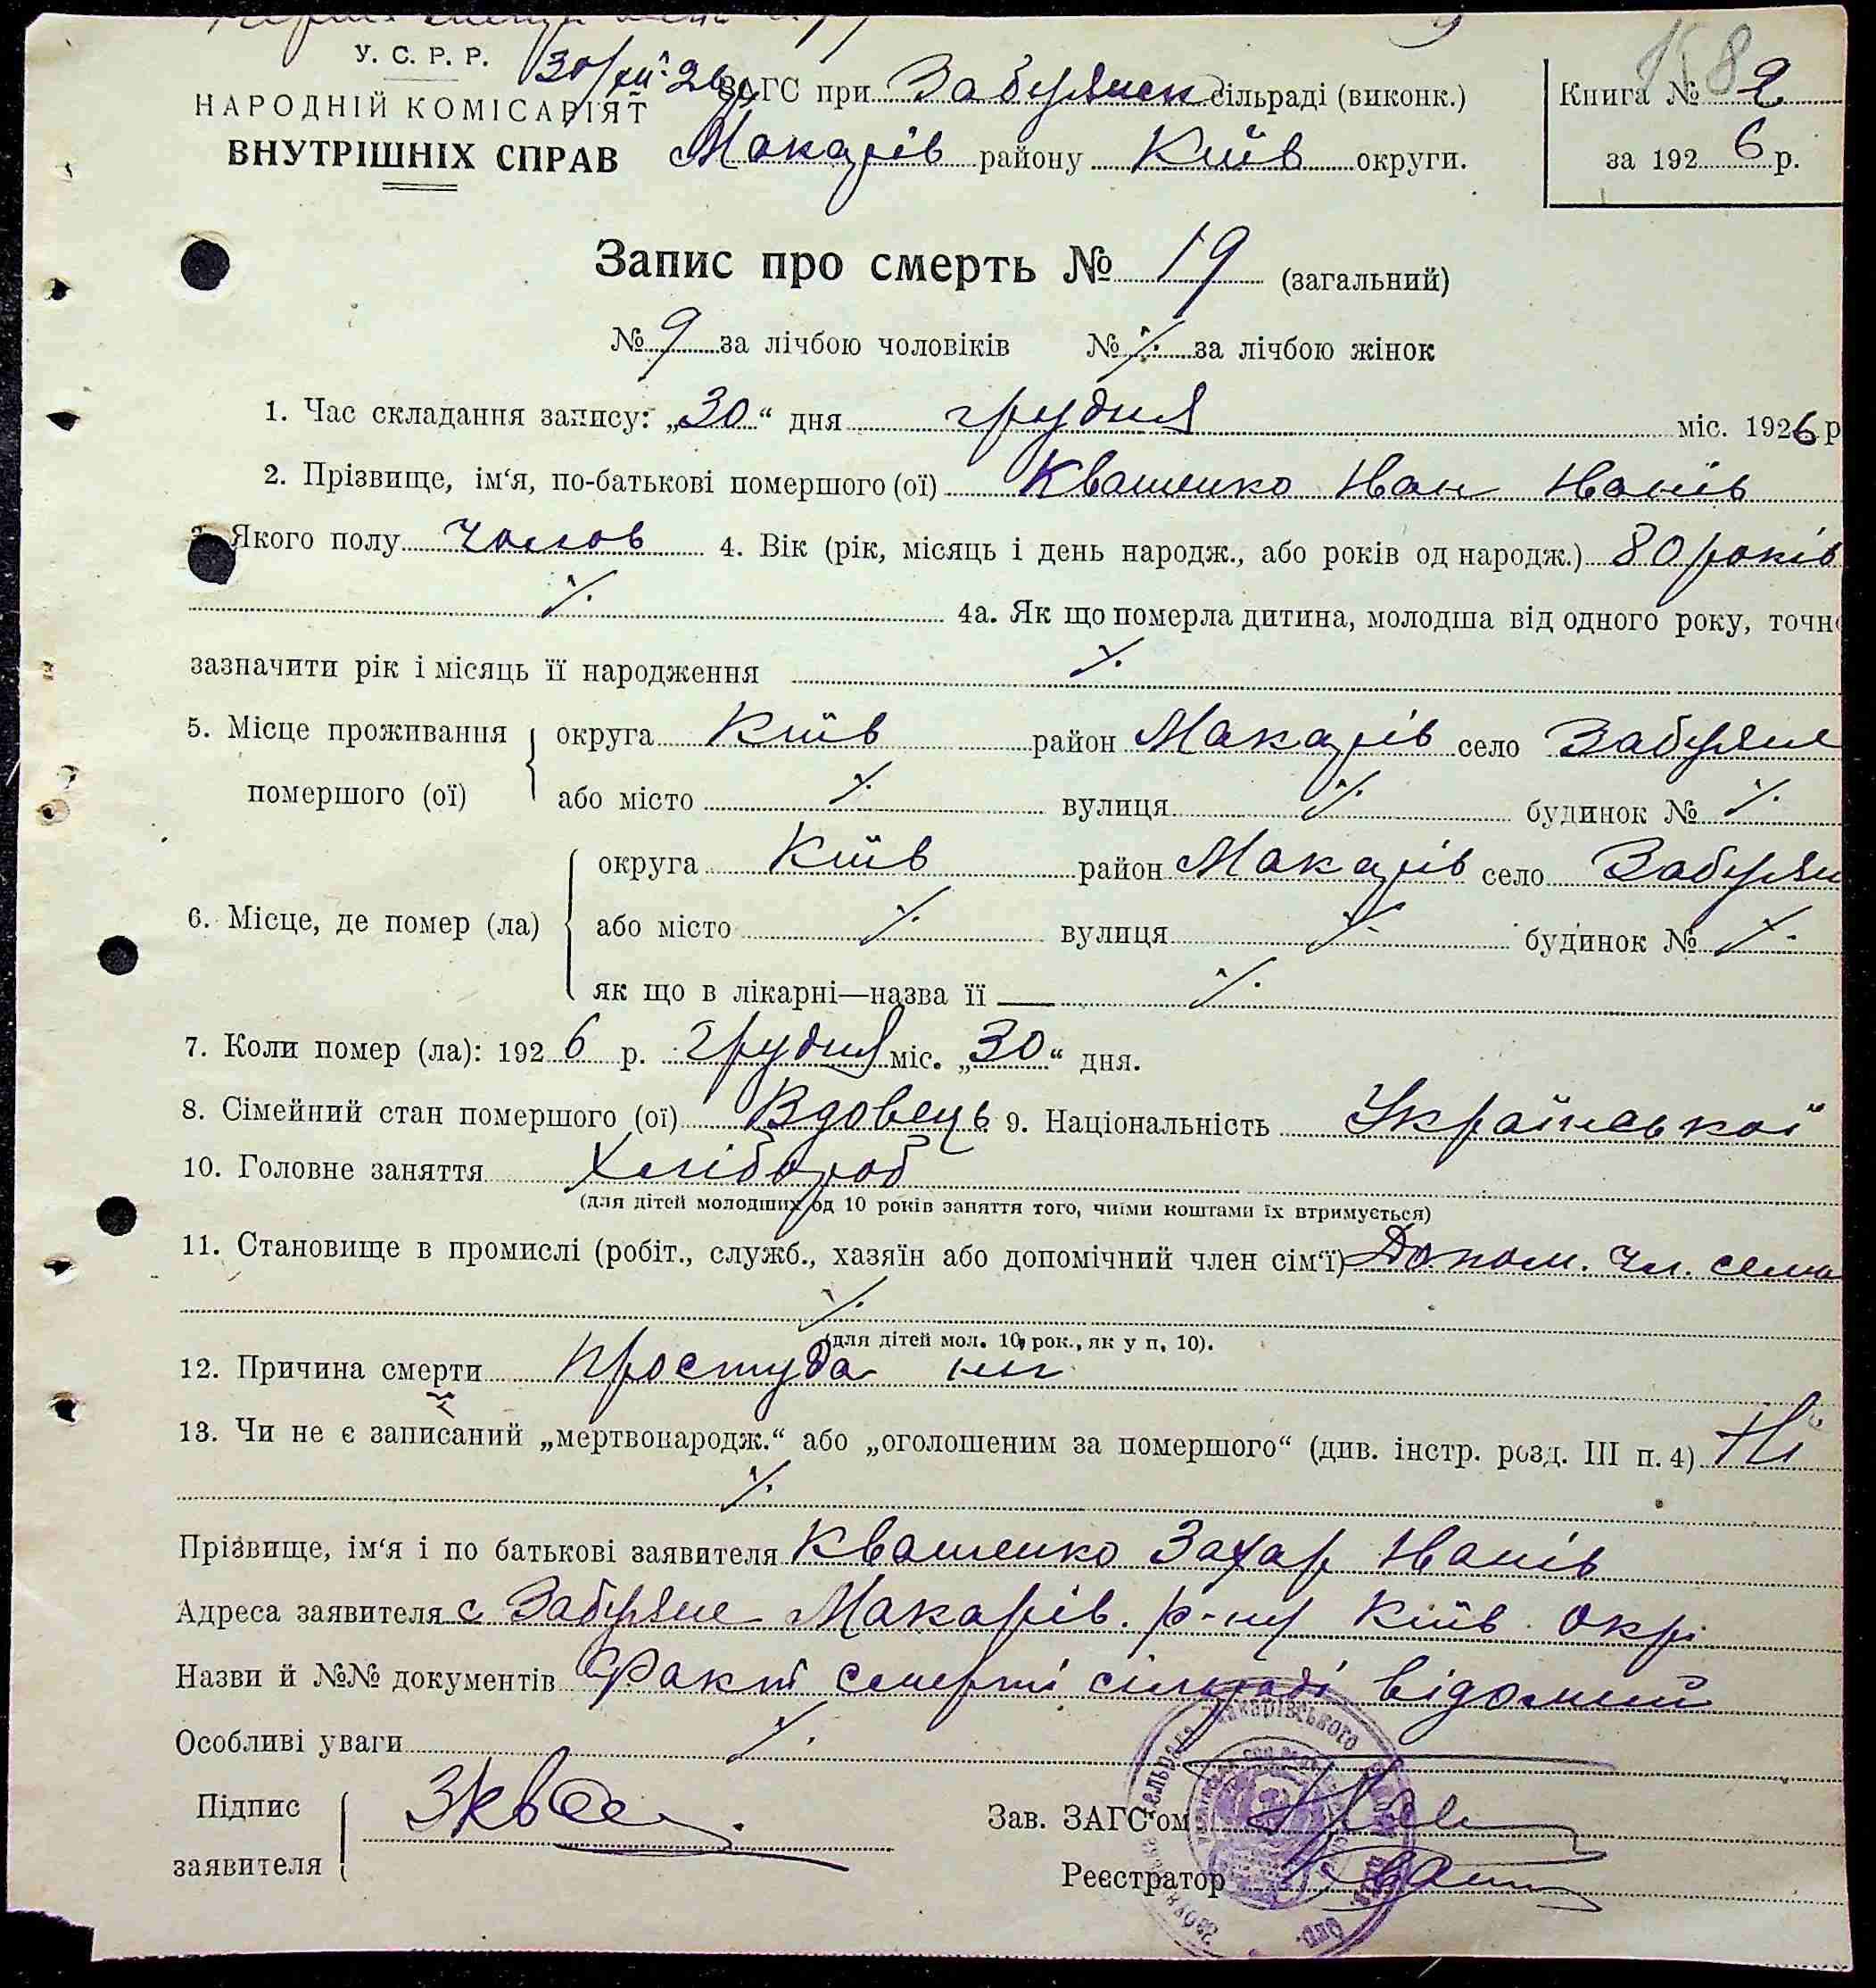 У. С. Р. Р.
НАРОДНІЙ КОМІСАРІЯТ
ВНУТРІШНІХ СПРАВ
30/XII 26
ЗАГС при Забуянск сільраді (виконк.)
Макарів району Київ округи.
158
Книга № 2
за 1926 р.
Запис про смерть № 19 (загальний)
№ 9 за лічбою чоловіків № ⁒ за лічбою жінок
1. Час складання запису: „30“ дня грудня міс. 1926 р
2. Прізвище, ім‘я, по-батькові помершого (ої) Квашенко Іван Іванів
3. Якого полу чолов 4. Вік (рік, місяць і день народж., або років од народж.) 80 років
⁒ 4а. Як що померла дитина, молодша від одного року, точно
зазначити рік і місяць її народження ⁒
5. Місце проживання помершого (ої) округа Київ район Макарів село Забуяне
або місто ⁒ вулиця ⁒ будинок № ⁒
6. Місце, де помер (ла) округа Київ район Макарів село Забуян
або місто ⁒ вулиця ⁒ будинок № ⁒
як що в лікарні—назва її ⁒
7. Коли помер (ла): 1926 р. грудня міс. „30“ дня.
8. Сімейний стан помершого (ої) Вдовець 9. Національність Української
10. Головне заняття Хлібороб
(для дітей молодших од 10 років заняття того, чиїми коштами їх втримується)
11. Становище в промислі (робіт., служб., хазяїн або допомічний член сім‘ї) Допом. чл. семи
⁒
(для дітей мол. 10 рок., як у п. 10).
12. Причина смерти простуда
13. Чи не є записаний „мертвонародж.“ або „оголошеним за помершого“ (див. інстр. розд. III п. 4) Ні
⁒
Прізвище, ім‘я і по батькові заявителя Квашенко Захар Іванів
Адреса заявителя с Забуяне Макарів. р-ну Київ. окр.
Назви й №№ документів Факт смерті сільраді відомий
Особливі уваги ⁒
Підпис заявителя ЗКва
Зав. ЗАГС‘ом
Реєстратор